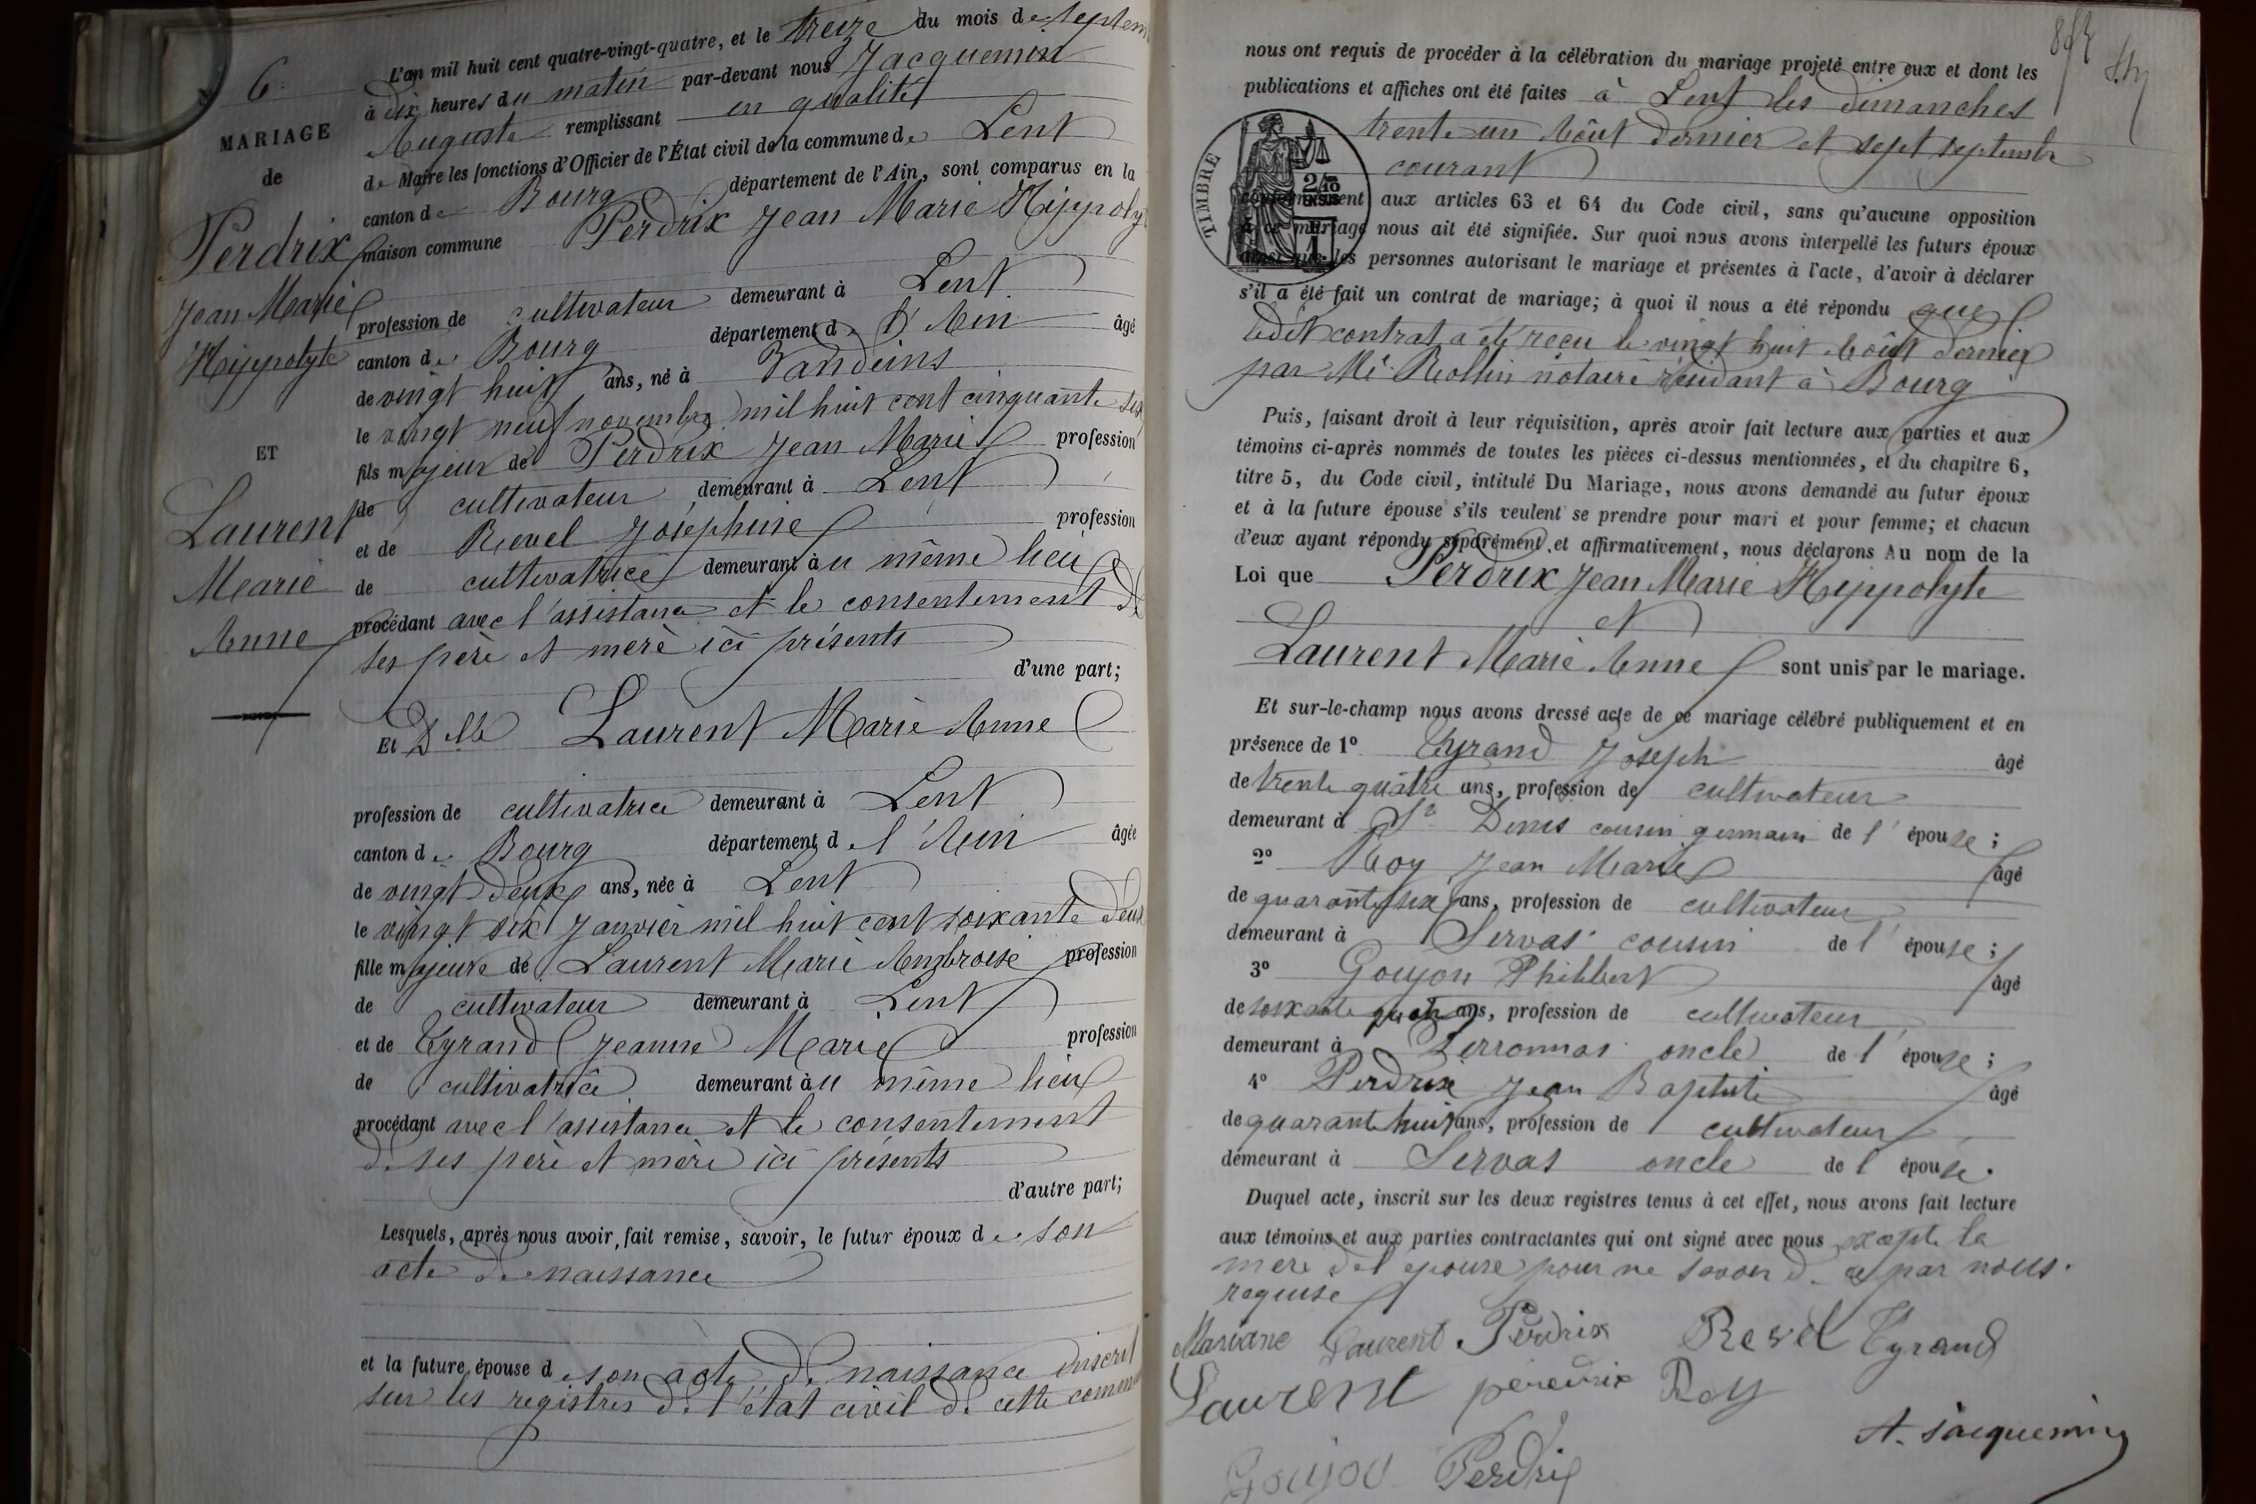 6
MARIAGE
de
Perdrix
Jean Marie
Hippolyte
ET
Laurent
Marie
Anne
L'an mil huit cent quatre-vingt-quatre, et le treize du mois de septem
à dix heures du matin par-devant nous Jacquemin
Auguste remplissant en qualité
de Maire les fonctions d'Officier de l'État civil de la commune de Lent
canton de Bourg département de l'Ain, sont comparus en la
maison commune Perdrix Jean Marie Hippoly
profession de cultivateur demeurant à Lent
canton de Bourg département d l'Ain âgé
de vingt huit ans, né à Vandeins
le vingt neuf novembre mil huit cent cinquante six
fils majeur de Perdrix Jean Marie profession
de cultivateur demeurant à Lent
et de Revel Joséphine profession
de cultivatrice demeurant au même lieu
procédant avec l'assistance et le consentement de
ses père et mère ici présents
d'une part;
Et Dlle Laurent Marie Anne
profession de cultivatrice demeurant à Lent
canton de Bourg département de l'Ain âgée
de vingt deux ans, née à Lent
le vingt six Janvier mil huit cent soixante deux
fille majeure de Laurent Marie Ambroise profession
de cultivateur demeurant à Lent
et de Tyrand Jeanne Marie profession
de cultivatrice demeurant au même lieu
procédant avec l'assistance et le consentement
de ses père et mère ici présents
d'autre part;
Lesquels, après nous avoir fait remise, savoir, le futur époux de son
acte de naissance
et la future épouse de son acte de naissance inscrit
sur les registres de l'état civil de cette commun
nous ont requis de procéder à la célébration du mariage projeté entre eux et dont les
publications et affiches ont été faites à Lent les dimanches
trente un Août dernier et sept septembre
courant
TIMBRE
2/10
EN SUS
1
conformément aux articles 63 et 64 du Code civil, sans qu'aucune opposition
à ce mariage nous ait été signifiée. Sur quoi nous avons interpellé les futurs époux
ainsi que les personnes autorisant le mariage et présentes à l'acte, d'avoir à déclarer
s'il a été fait un contrat de mariage; à quoi il nous a été répondu que
ledit contrat a été reçu le vingt huit Août dernier
par Me Rollin notaire résidant à Bourg
Puis, faisant droit à leur réquisition, après avoir fait lecture aux parties et aux
témoins ci-après nommés de toutes les pièces ci-dessus mentionnées, et du chapitre 6,
titre 5, du Code civil, intitulé Du Mariage, nous avons demandé au futur époux
et à la future épouse s'ils veulent se prendre pour mari et pour femme; et chacun
d'eux ayant répondu séparément et affirmativement, nous déclarons Au nom de la
Loi que Perdrix Jean Marie Hippolyte
et
Laurent Marie Anne sont unis par le mariage.
Et sur-le-champ nous avons dressé acte de ce mariage célébré publiquement et en
présence de 1º Tyrand Joseph âgé
de trente quatre ans, profession de cultivateur
demeurant à St Denis cousin germain de l'épouse;
2º Roy Jean Marie âgé
de quarante six ans, profession de cultivateur
demeurant à Servas cousin de l'épouse;
3º Goujon Philibert âgé
de soixante quatre ans, profession de cultivateur
demeurant à Perronnas oncle de l'épouse;
4º Perdrix Jean Baptiste âgé
de quarante huit ans, profession de cultivateur
demeurant à Servas oncle de l'épouse.
Duquel acte, inscrit sur les deux registres tenus à cet effet, nous avons fait lecture
aux témoins et aux parties contractantes qui ont signé avec nous excepté la
mère de l'épouse pour ne savoir de ce par nous
requise
Mariane Laurent Perdrix Revel Tyrand
Laurent peredrix Roy
A. Jacquemin
Goujon Perdrix